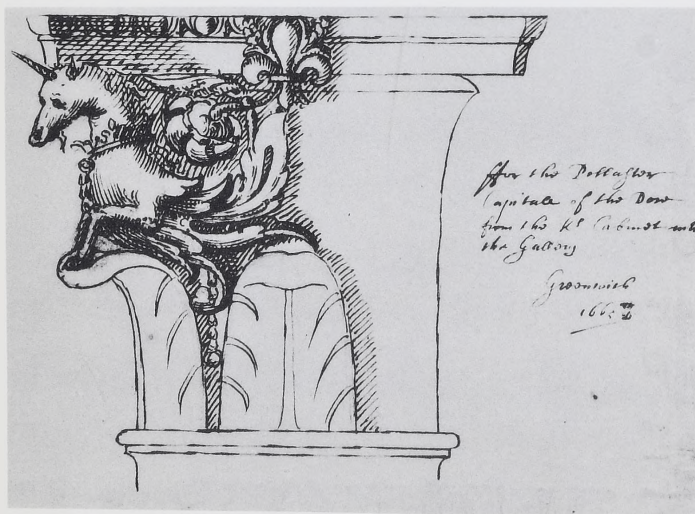 ffor the Pollaster
Capitall of the Dore
from the Ks Cabinet into
the Gallery
Greenwich
1665